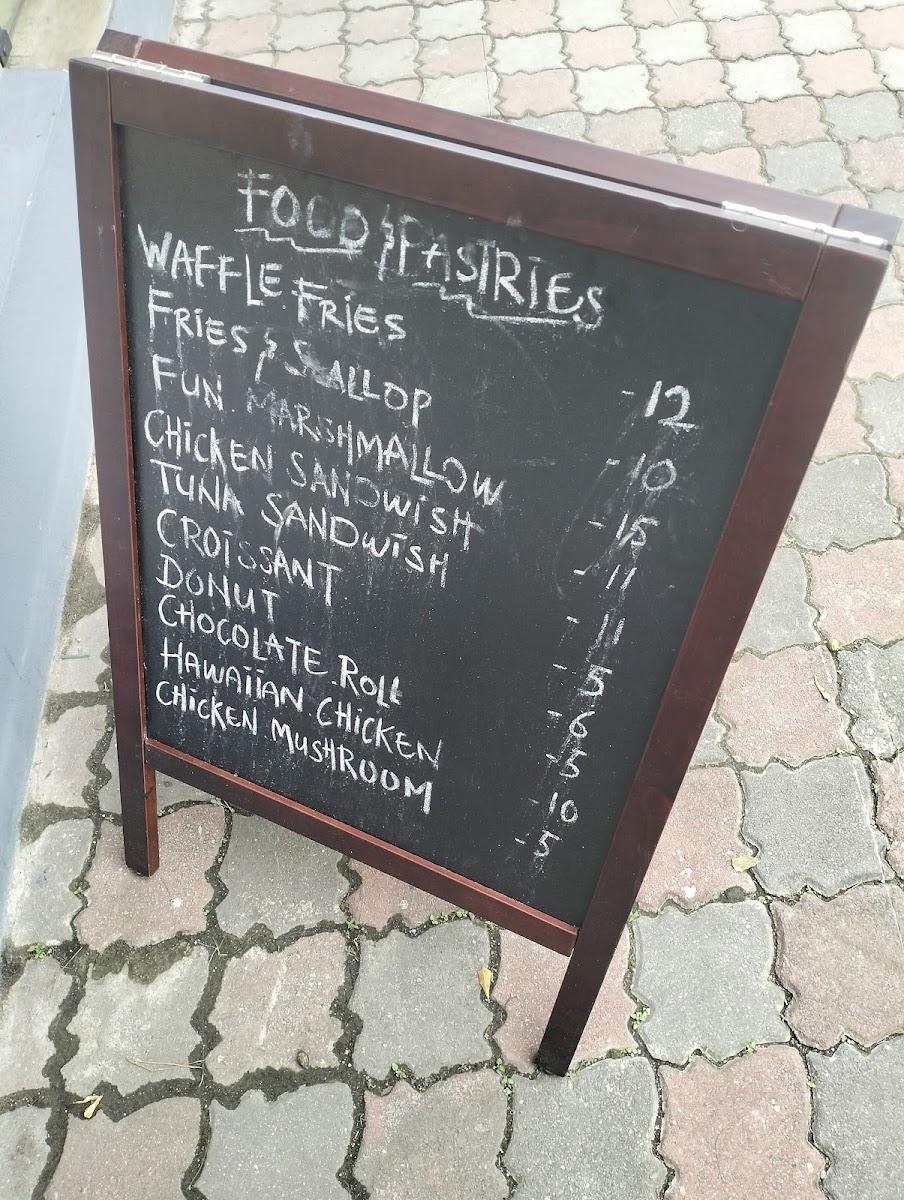 FOOD & PASTRIES
WAFFLE.FRIES - 12
FRIES & SCALLOP - 10
FUN. MARSHMALLOW - 15
CHICKEN SANDWISH - 11
TUNA SANDWISH - 11
CROISSANT - 5
DONUT - 6
CHOCOLATE.ROLL - 5
HAWAIIAN.CHICKEN - 10
CHICKEN MUSHROOM - 5